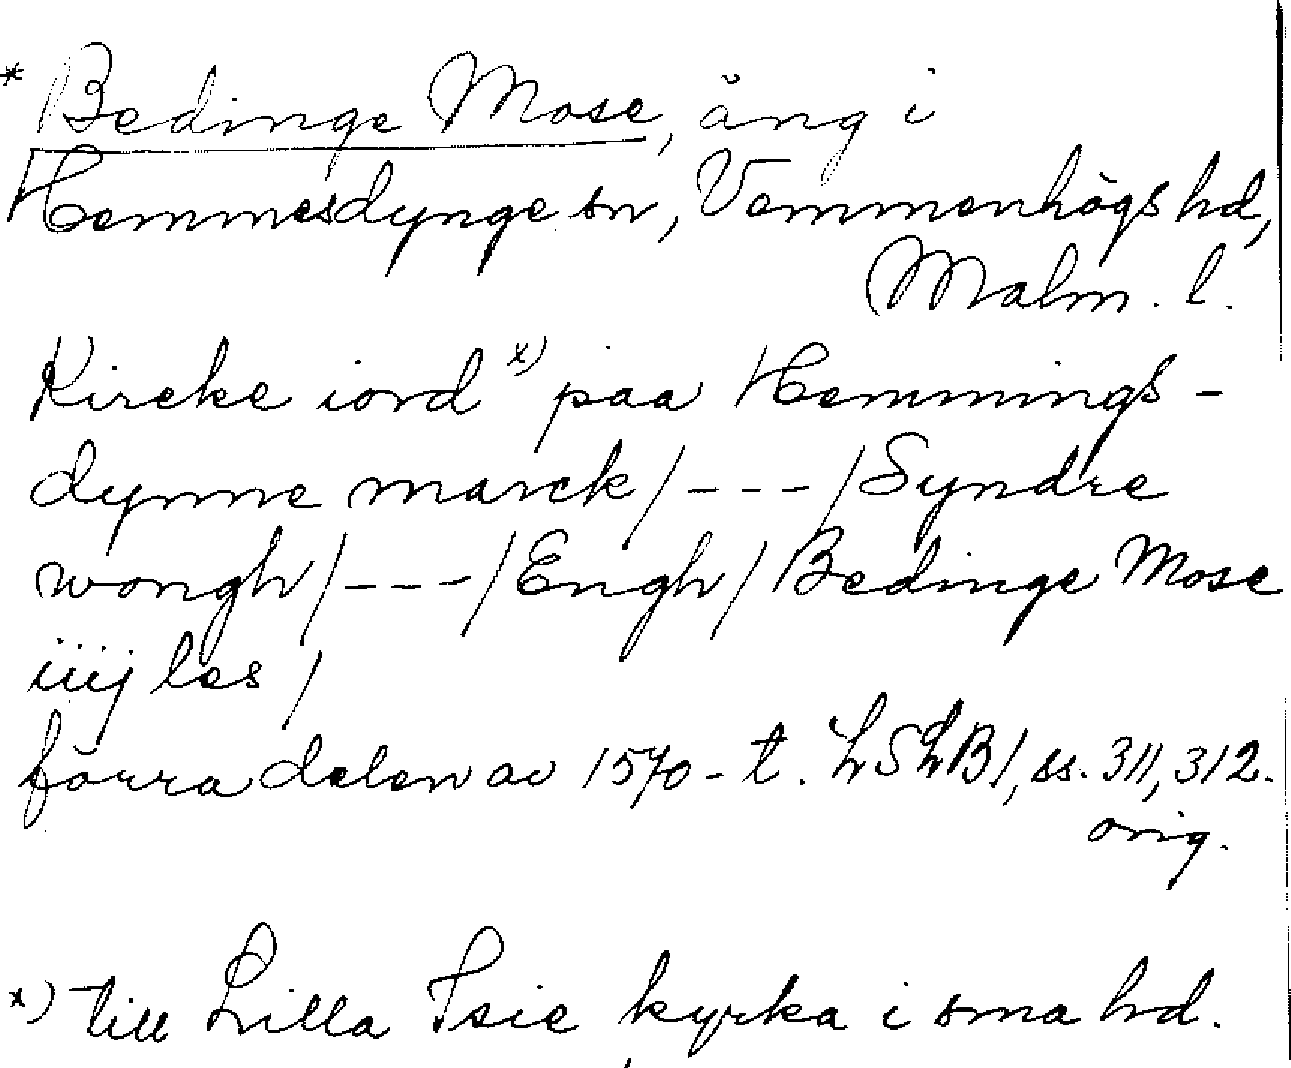 * Bedinge Mose, äng i
Hemmesdynge sn, Vemmenhögs hd,
Malm. l.
Kircke iord x) paa Hemmings-
dynne marck / - - - / Syndre
wongh / - - - / Engh / Bedinge Mose
iiij les /
förra delen av 1570-t. LSLB1, ss. 311, 312.
orig.
x) till Lilla Isie kyrka i sma hd.